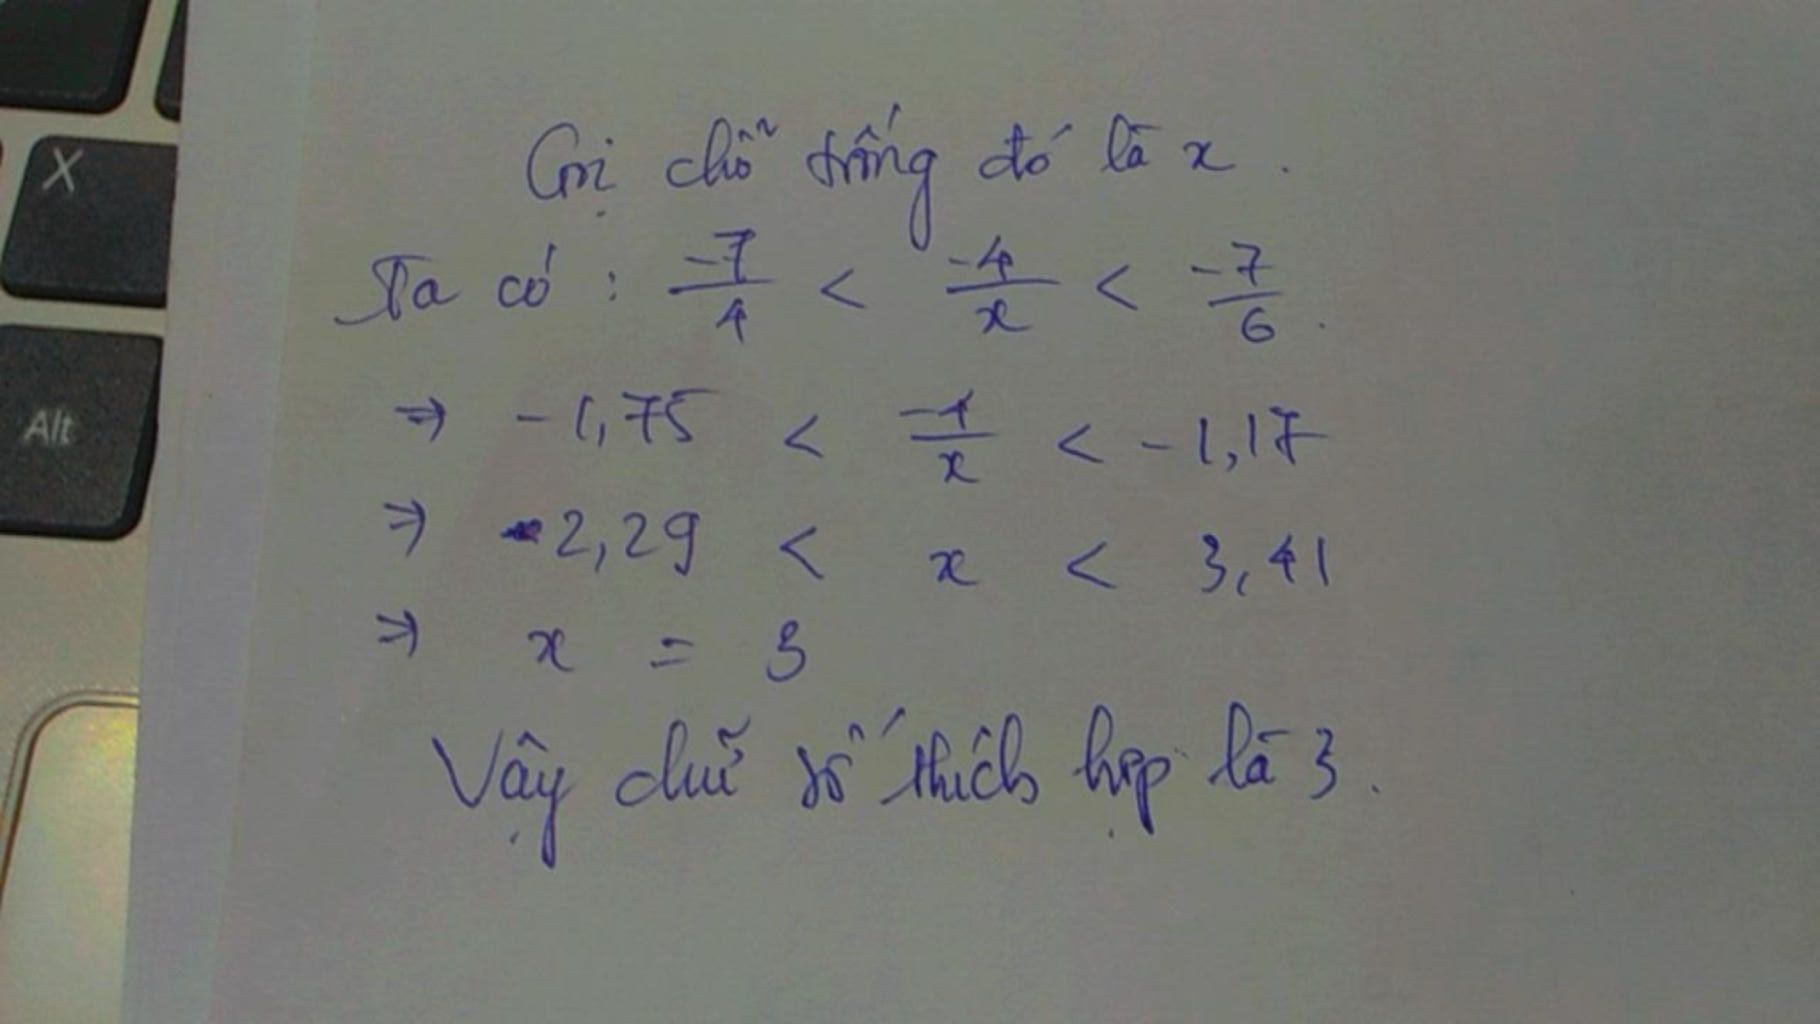 X
Alt
Gọi chỗ trống đó là x.
Ta có : -7/4 < -4/x < -7/6.
⇒ -1,75 < -4/x < -1,17
⇒ 2,29 < x < 3,41
⇒ x = 3
Vậy chữ số thích hợp là 3.